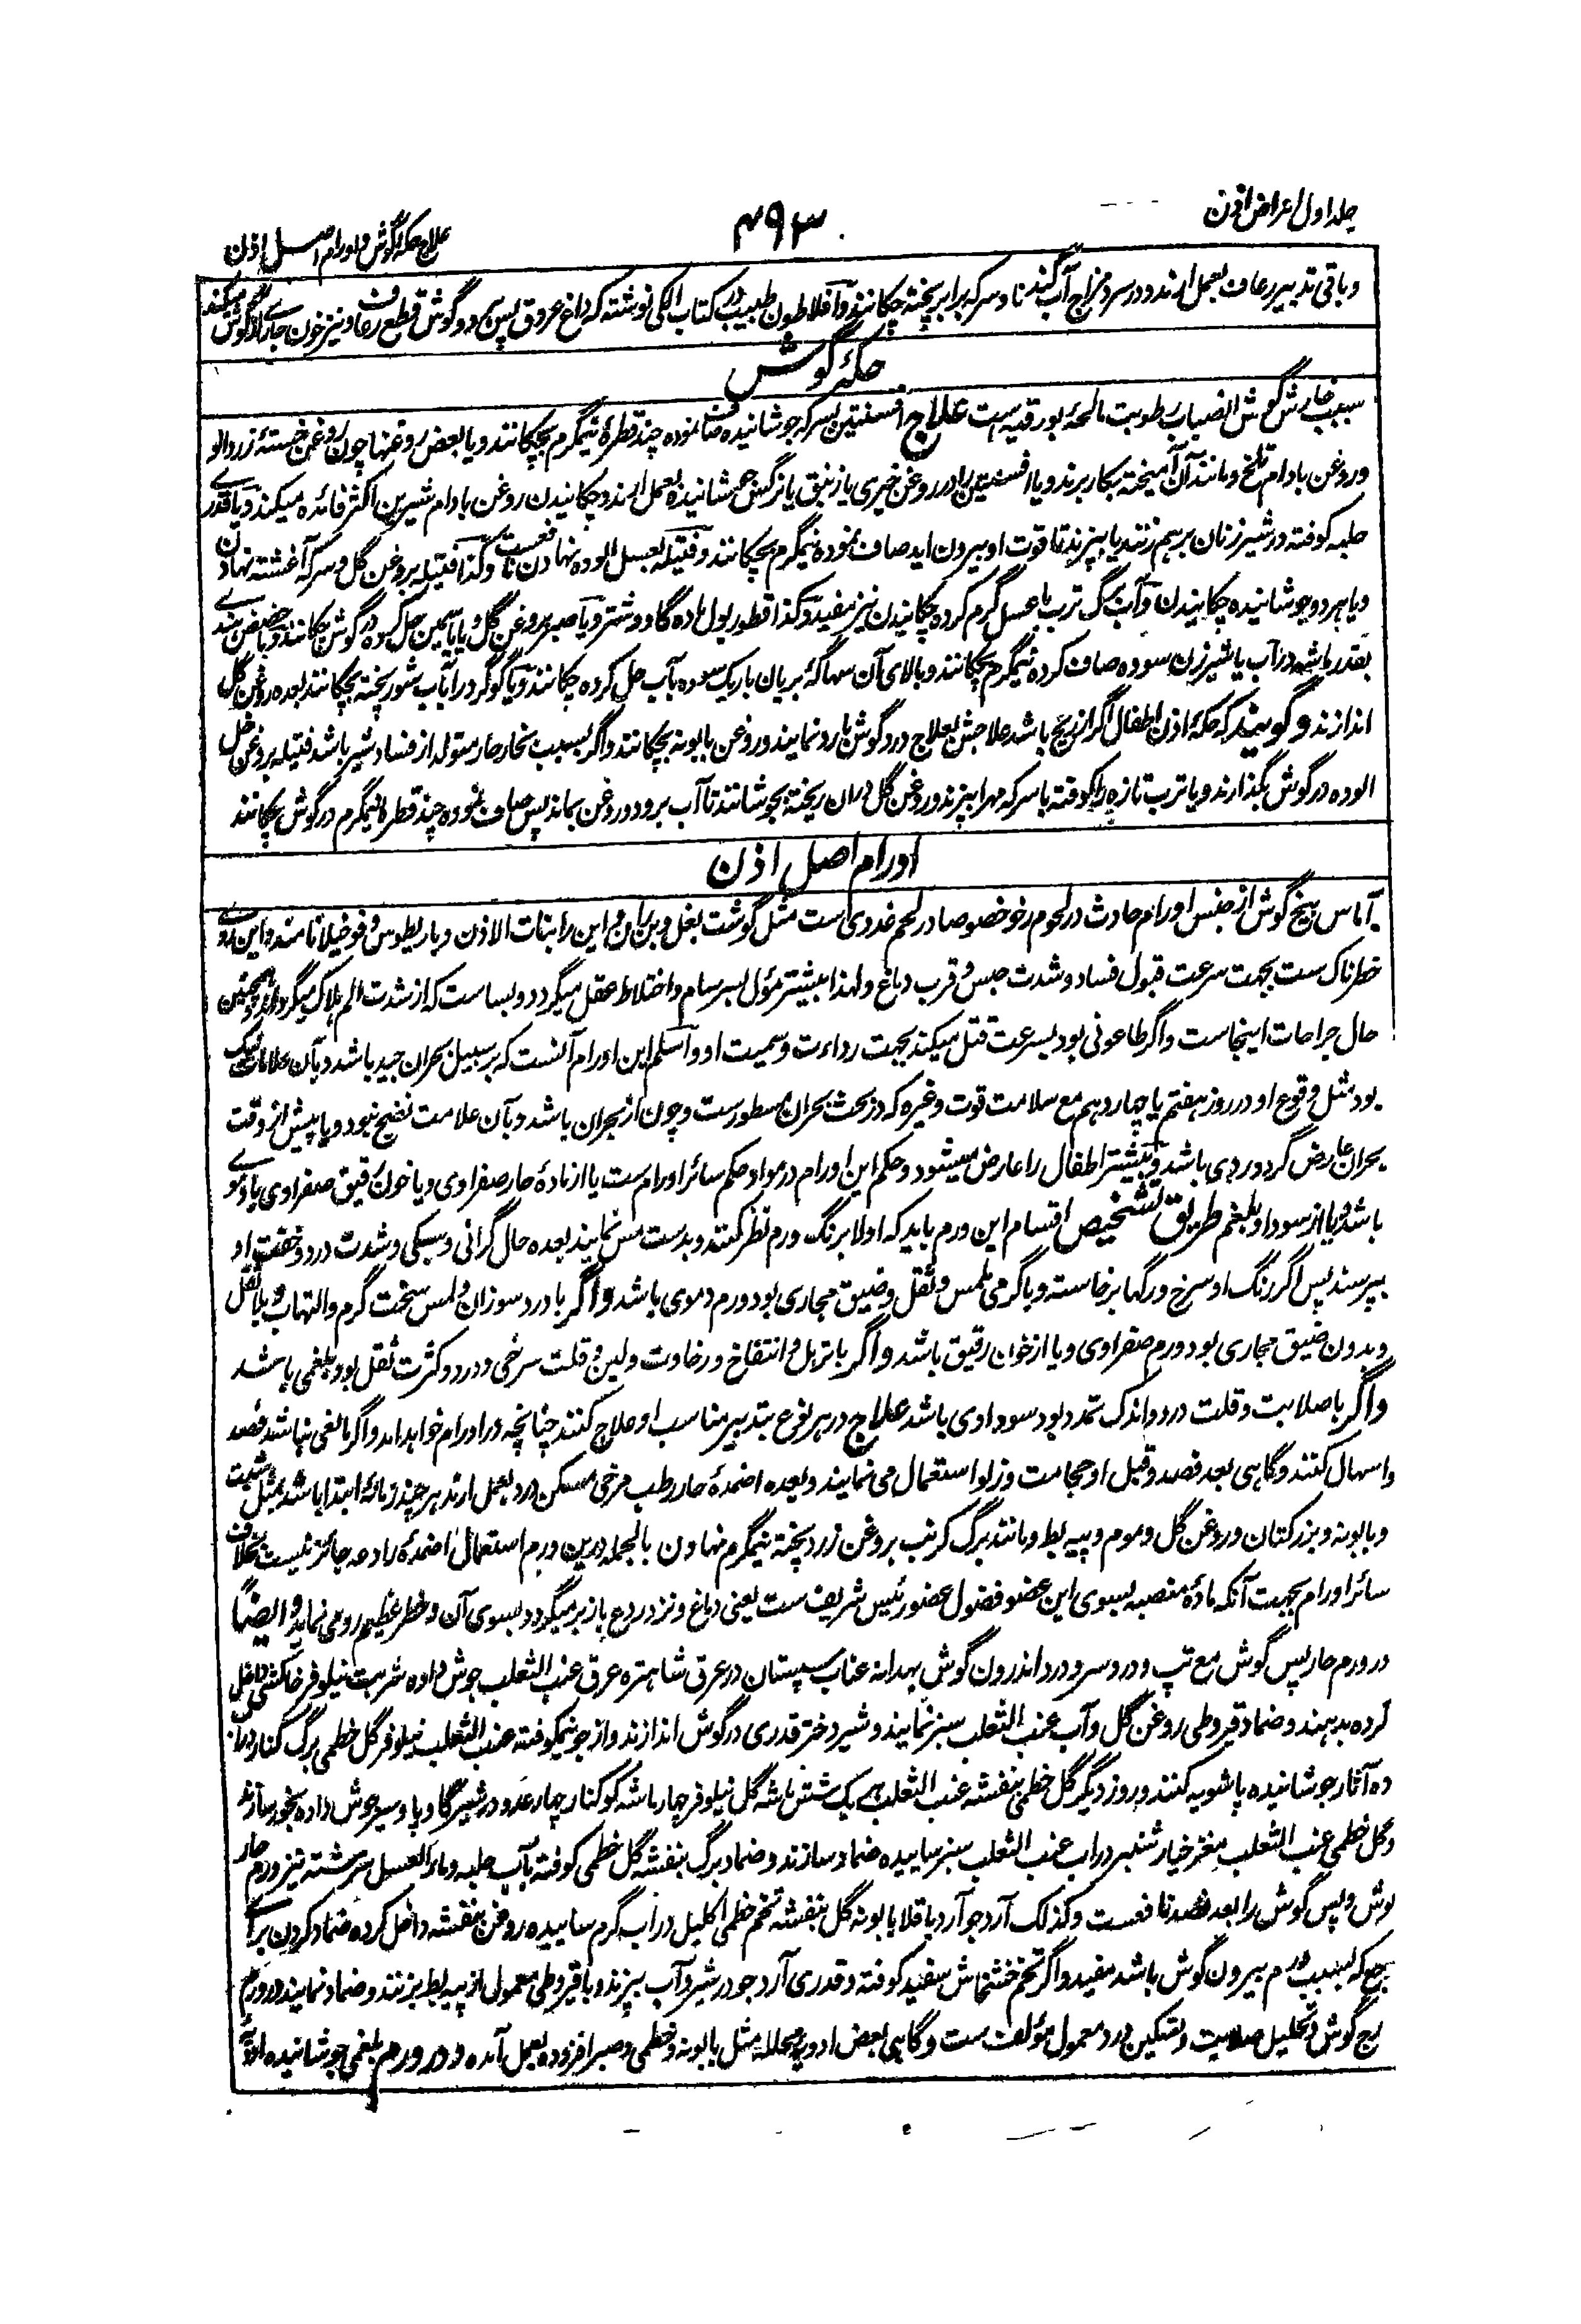 جلد اول امراض اذن
۴۹۳
علاج حکه گوش و اورام اصل اذن
و باقی تدبیر رعاف بعمل ارند و در سرد مزاج آب گندنا و سرکه برابر پخته چکانند و افلاطون طبیب در کتاب الکی نوشته که داغ عروق پس دو گوش قطع رعاف و نیز خون جاری از گوش میکند
حکهٔ گوش
سبب خارش گوش انصباب رطوبت مالحهٔ بورقیه ست علاج افسنتین بسرکه جوشانیده صاف نموده چند قطرهٔ نیمگرم بچکانند و یا بعض روغنها چون روغن خستهٔ زردالو
و روغن بادام تلخ و مانند آن آمیخته بکار برند و یا افسنتین را در روغن خیری یا زنبق یا نرگس جوشانیده بعمل ارند و چکانیدن روغن بادام شیرین اکثر فائده میکند و یا قدری
حلبه کوفته در شیر زنان برهم زنند یا بپزند تا قوت او بیرون اید صاف نموده نیمگرم بچکانند و فتیله بعسل الوده نهادن نافعست و کذا فتیله بروغن گل و سرکه آغشته نهادن
و یا هر دو جوشانیده چکانیدن و آب برگ ترب با عسل گرم کرده چکانیدن نیز مفید و کذا قطور بول ماده گاو و شتر و یا صبر بروغن گل و یا یاسمین حل کرده در گوش چکانند و یا حضض هندی
بقدر ماشه در آب یا شیر زن سوده صاف کرده نیمگرم بچکانند و بالای آن سهاگهٔ بریان باریک سوده بآب حل کرده چکانند و یا گوگرد را بآب شور پخته بچکانند بعده روغن گل
اندازند و گویند که حکهٔ اذن اطفال اگر از ریح باشد علاجش بعلاج درد گوش بارد نمایند و روغن بابونه بچکانند و اگر بسبب بخار حار متولد از فساد شیر باشد فتیله بروغن گل
الوده در گوش بگذارند و یا ترب تازه را کوفته با سرکه مهرا بپزند و روغن گل دران ریخته بجوشانند تا آب برود و روغن بماند پس صاف نموده چند قطره نیمگرم در گوش بچکانند
اورام اصل اذن
آماس بیخ گوش از جنس اورام حادث در لحوم رخو خصوصا در لحم غددی است مثل گوشت بغل و بن ران و این را بنات الاذن و باریطوس و فوخیلا نامند و این ردی
خطرناک ست بجهت سرعت قبول فساد و شدت حس و قرب دماغ و لهذا بیشتر مؤل بسرسام و اختلاط عقل میگردد و بسا ست که از شدت الم هلاک میگرداند و همچنین
حال جراحات اینجاست و اگر طاعونی بود بسرعت قتل میکند بجهت رداءت و سمیت او و اسلم این اورام آنست که بر سبیل بحران جید باشد و بآن علامات نیک
بود مثل وقوع او در روز هفتم یا چهاردهم مع سلامت قوت و غیره که در بحث بحران مسطورست و چون از بحران باشد و بآن علامت نضج نبود و یا پیش از وقت
بحران عارض گردد ردی باشد و بیشتر اطفال را عارض میشود و حکم این اورام در مواد حکم سائر اورام ست یا از مادهٔ حار صفراوی و یا خون رقیق صفراوی یا دموی
باشد و یا از سودا و بلغم طریق تشخیص اقسام این ورم باید که اولا برنگ ورم نظر کنند و بدست مس نمایند بعده حال گرانی و سبکی و شدت درد و خفت او
بپرسند پس اگر رنگ او سرخ و رگها برخاسته و با گرمی ملمس و ثقل و ضیق مجاری بود ورم دموی باشد و اگر با درد سوزان و لمس سخت گرم و التهاب و بلا ثقل
و بدون ضیق مجاری بود ورم صفراوی و یا از خون رقیق باشد و اگر با تربل و انتفاخ و رخاوت و لین و قلت سرخی و درد و کثرت ثقل بود بلغمی باشد
و اگر با صلابت و قلت درد و اندک تمدد بود سوداوی باشد علاج در هر نوع بتدبیر مناسب او علاج کنند چنانچه در اورام خواهد امد و اگر مانعی نباشد فصد
و اسهال کنند و گاهی بعد فصد و قبل او حجامت و زلو استعمال می نمایند و بعده اضمدهٔ حار رطب مرخی مسکن درد بعمل ارند هر چند زمانهٔ ابتدا باشد مثل شبت
و بابونه و بزر کتان و روغن گل و موم و پیه بط و مانند برگ کرنب بروغن زرد پخته نیمگرم نهادن بالجمله درین ورم استعمال اضمدهٔ رادعه جائز نیست بخلاف
سائر اورام بجهت آنکه مادهٔ منصبه بسوی این عضو فضول عضو رئیس شریف ست یعنی دماغ و نزد ردع باز برمیگردد بسوی آن و خطر عظیم رو می نماید و ایضاً
در ورم حار پس گوش مع تپ و درد سر و درد اندرون گوش بهدانه عناب سپستان در عرق شاهتره عرق عنب الثعلب جوش داده شربت نیلوفر خاکشی داخل
کرده بدهند و ضماد قیروطی روغن گل و آب عنب الثعلب سبز نمایند و شیر دختر قدری در گوش اندازند و از جو نیمکوفته عنب الثعلب نیلوفر گل خطمی برگ کنار در
ده آثار جوشانیده پاشویه کنند و روز دیگر گل خطمی بنفشه عنب الثعلب هر یک شش ماشه گل نیلوفر چهار ماشه کوکنار چهار عدد در شیر گاو پاو سیر جوش داده بخور سازند
و گل خطمی عنب الثعلب مغز خیار شنبر در اب عنب الثعلب سبز ساییده ضماد سازند و ضماد برگ بنفشه گل خطمی کوفته بآب حلبه و ماء العسل سرشته نیز ورم حار
گوش و پس گوش را بعد فصد نافعست و کذلک آرد جو آرد باقلا بابونه گل بنفشه تخم خطمی اکلیل در آب گرم ساییده روغن بنفشه داخل کرده ضماد کردن برای
وجع که بسبب ورم بیرون گوش باشد مفید و اگر تخم خشخاش سفید کوفته و قدری آرد جو در شیر و آب بپزند و با قیروطی معمول از پیه بط بزنند و ضماد نمایند در ورم
بیخ گوش و تحلیل صلابت و تسکین درد معمول مؤلف ست و گاهی بعض ادویهٔ محلله مثل بابونه و خطمی و صبر افزوده بعمل آمده و در ورم بلغمی جوشانیده